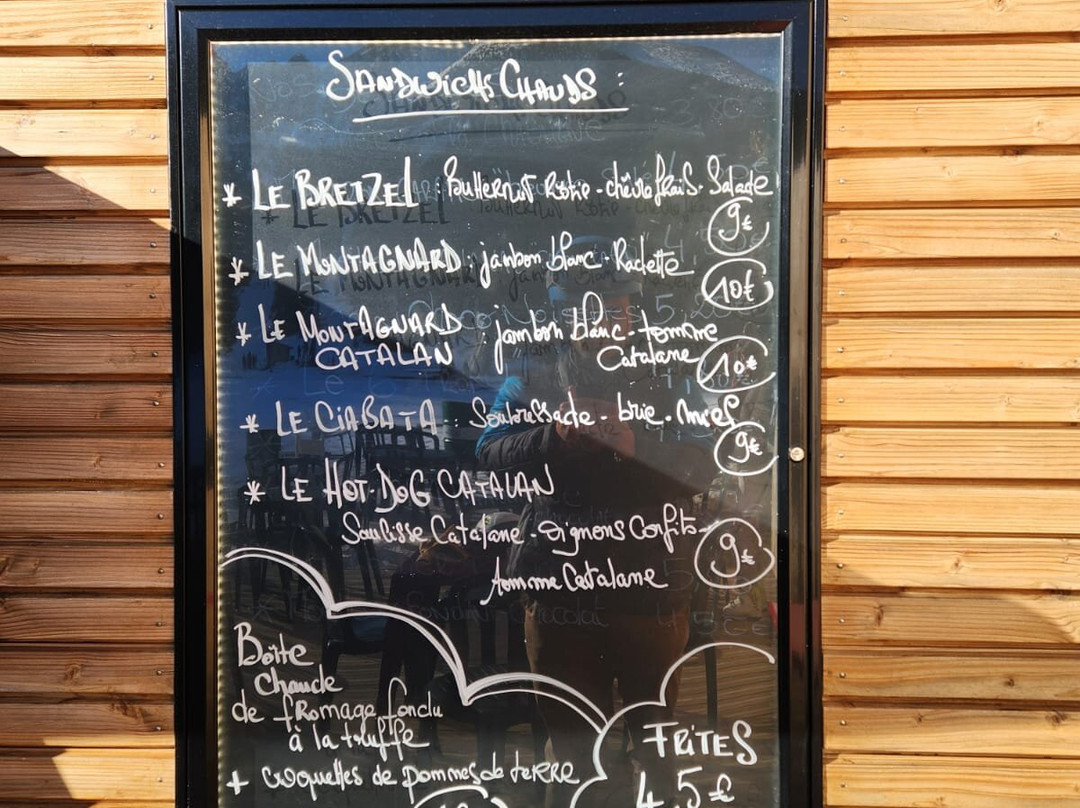 SANDWICHS CHAUDS :
* LE BRETZEL : Butternut Rôtie - chèvre frais - Salade
9€
* LE MONTAGNARD : jambon blanc - Raclette
10€
* LE MONTAGNARD : jambon blanc - tomme
CATALAN Catalane
10€
* LE CIABATA : Soubressade - brie - miel
9€
* LE HOT-DOG CATALAN
Saucisse Catalane - oignons confits -
9€
tomme Catalane
Boîte
Chaude
de fromage fondu
à la truffe
+ croquettes de pommes de terre
FRITES
4,5€